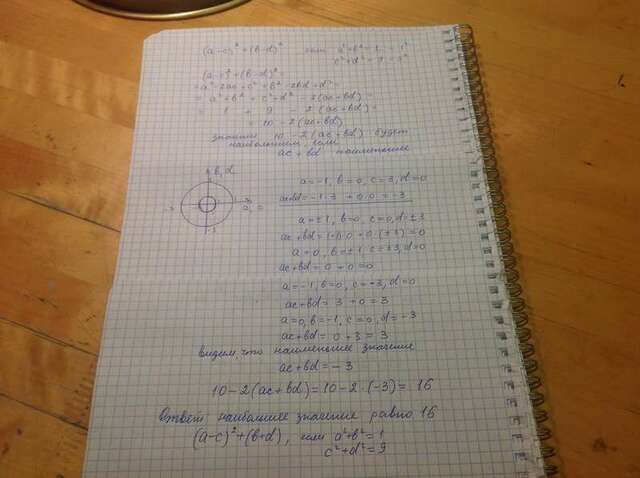 (a-c)² + (b-d)² если a²+b² = 1 = 1²
c²+d² = 9 = 3²
(a-c)² + (b-d)² =
= a² - 2ac + c² + b² - 2bd + d² =
= a² + b² + c² + d² - 2(ac + bd) =
= 1 + 9 - 2(ac + bd) =
= 10 - 2(ac + bd)
значит 10 - 2(ac + bd) будет
наибольшим, если
ac + bd наименьшее
b, d
a, c
-3
a = -1, b = 0, c = 3, d = 0
ac+bd = -1·3 + 0·0 = -3
a = ±1, b = 0, c = 0, d = ±3
ac + bd = (±1)·0 + 0·(±3) = 0
a = 0, b = ±1, c = ±3, d = 0
ac+bd = 0 + 0 = 0
a = -1, b = 0, c = -3, d = 0
ac+bd = 3 + 0 = 3
a = 0, b = -1, c = 0, d = -3
ac+bd = 0 + 3 = 3
Видим что наименьшее значение
ac + bd = -3
10 - 2(ac + bd) = 10 - 2·(-3) = 16
Ответ наибольшее значение равно 16
(a-c)² + (b+d), если a²+b² = 1
c²+d² = 9